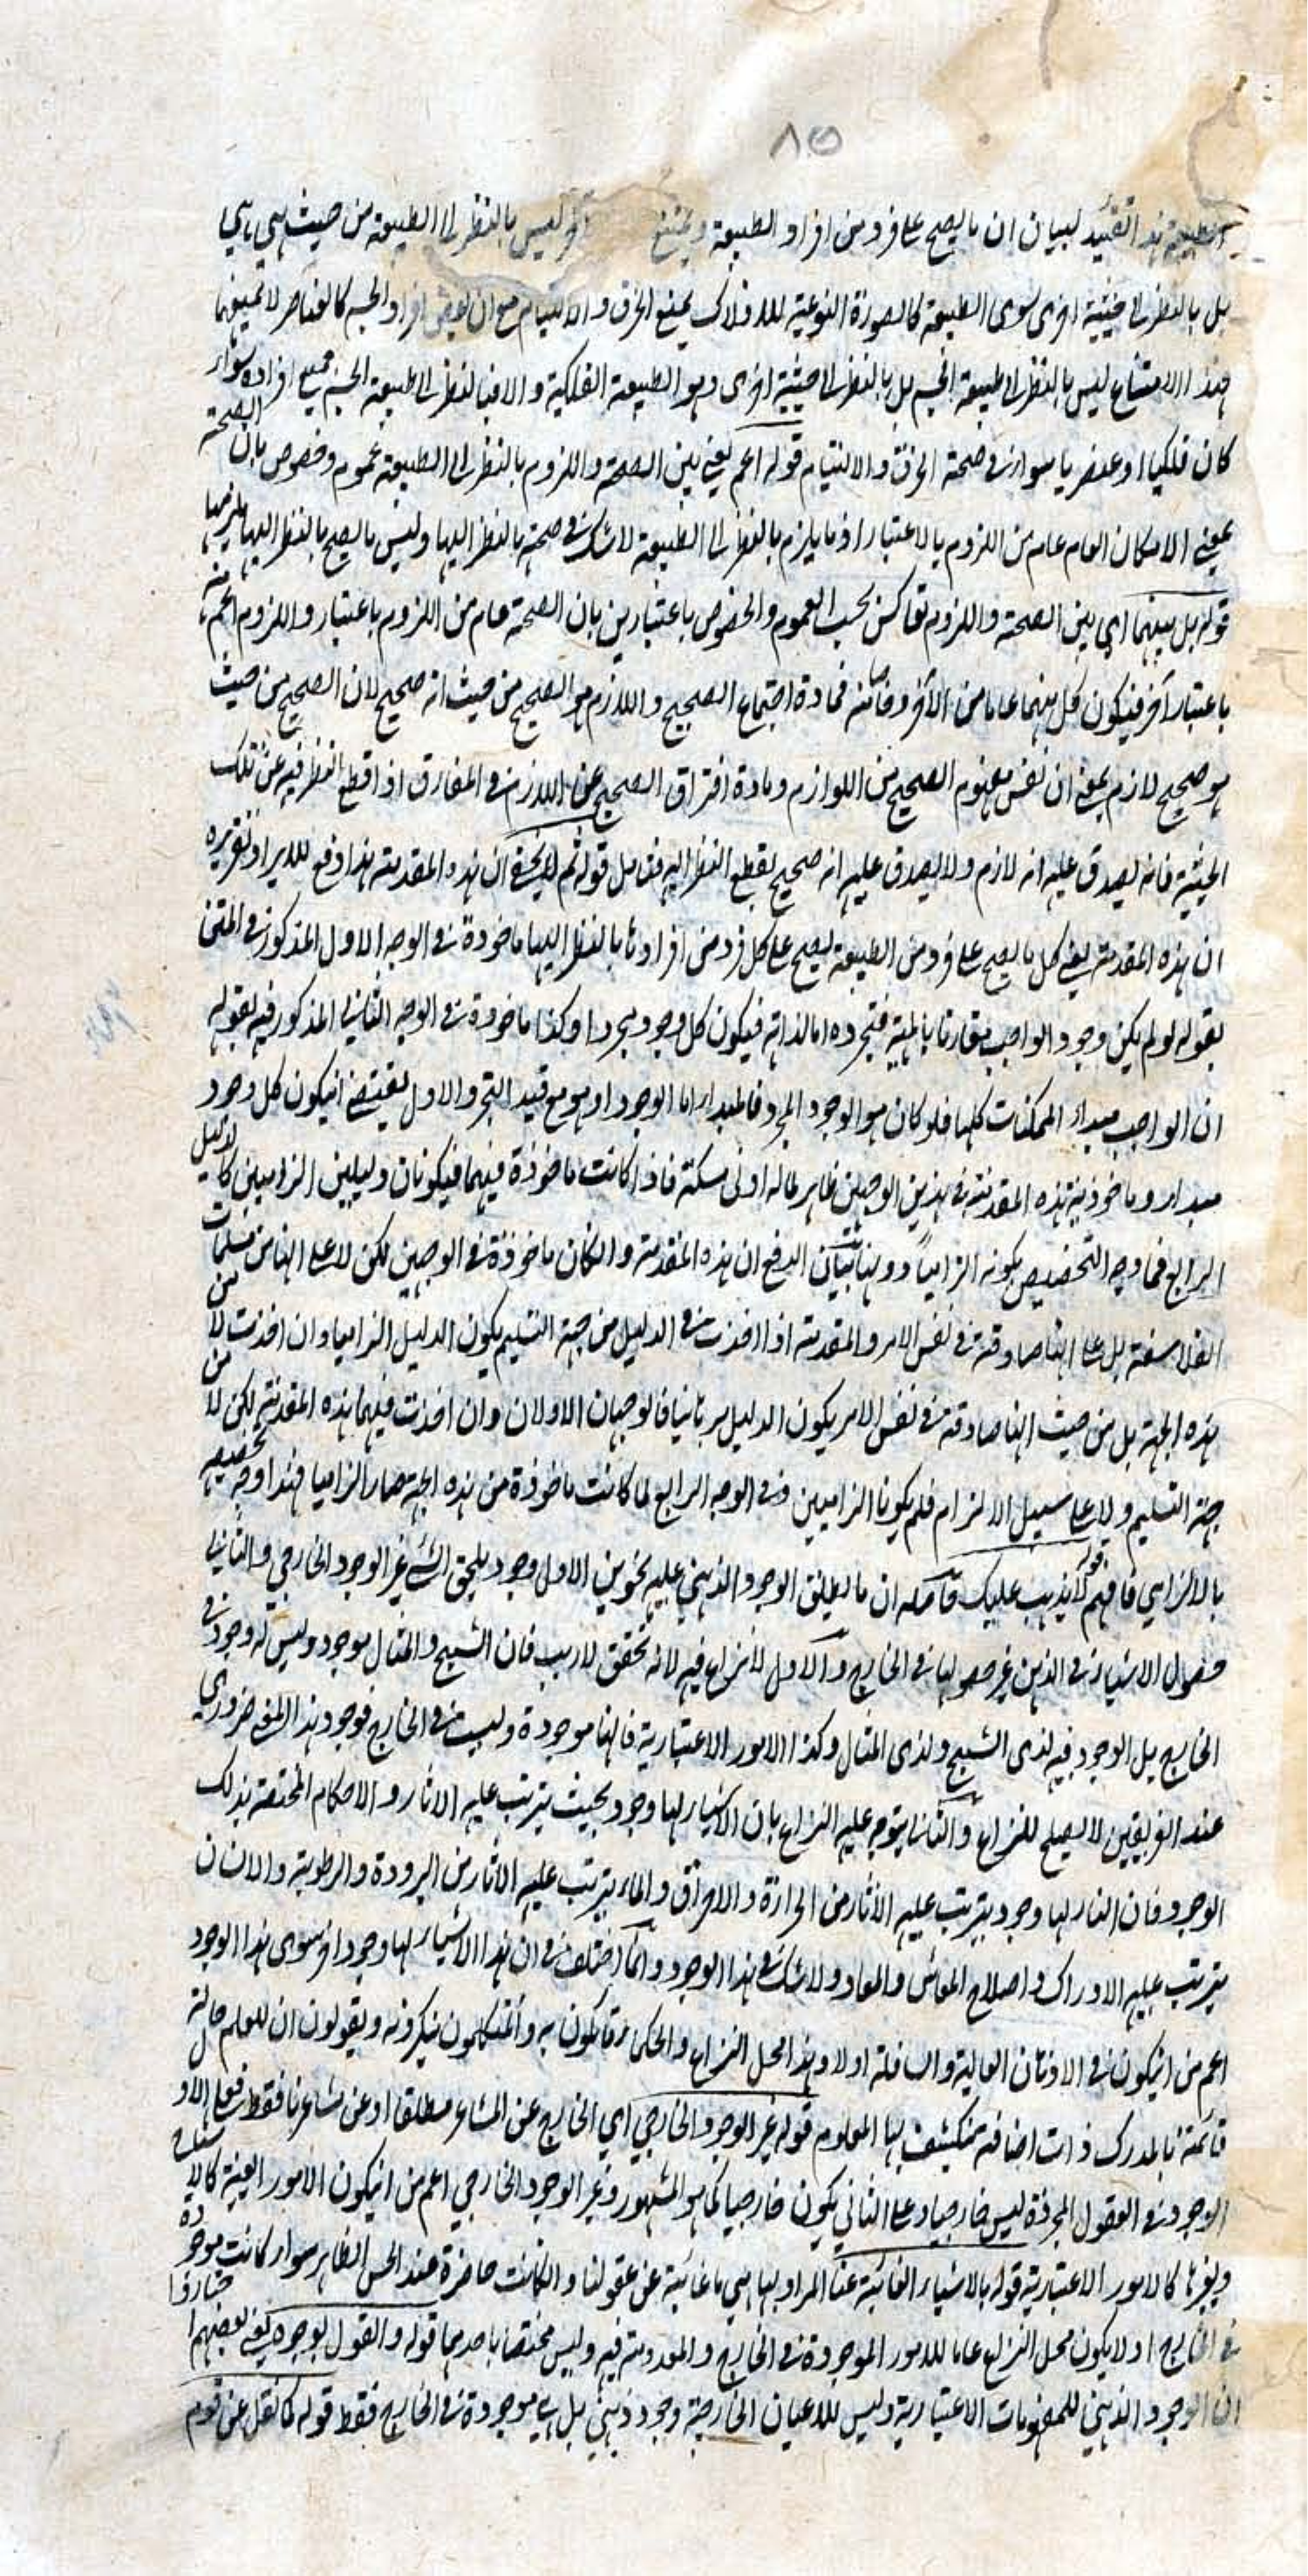 ٨٥
الطبيعة هذا التقييد لبيان ان ما يصح على فرد من افراد الطبيعة ويمتنع آخر ليس بالنظر الى الطبيعة من حيث هي هي
بل بالنظر الى حيثية اخرى سوى الطبيعة كالصورة النوعية للافلاك يمتنع الخرق والالتيام مع ان بعض افراد الجسم كالعناصر لا تمنعهما
فهذا الامتناع ليس بالنظر الى طبيعة الجسم بل بالنظر الى حيثية اخرى وهو الطبيعة الفلكية والا فبالنظر الى طبيعة الجسم جميع افراده سواء
كان فلكيا او عنصريا سواء في صحة الخرق والالتيام قوله اعم يعني بين الصحة واللزوم بالنظر الى الطبيعة عموم وخصوص بان الصحة
بمعنى الامكان العام عام من اللزوم بالاعتبار اذ ما يلزم بالنظر الى الطبيعة لا شك في صحته بالنظر اليها وليس ما يصح بالنظر اليها يلزمها
قوله بل بينهما اي بين الصحة واللزوم تعاكس بحسب العموم والخصوص باعتبارين بان الصحة عام من اللزوم باعتبار واللزوم اعم منه
باعتبار آخر فيكون كل منهما عاما من الآخر وخاصا منه فمادة اجتماع الصحيح واللازم هو الصحيح من حيث انه صحيح لان الصحيح من حيث
هو صحيح لازم بمعنى ان نفس مفهوم الصحيح من اللوازم ومادة افتراق الصحيح عن اللازم في المفارق اذا قطع النظر فيه عن تلك
الحيثية فانه يصدق عليه انه لازم ولا يصدق عليه انه صحيح بقطع النظر اليه فتامل قوله ثم لا يخفى ان هذه المقدمة هذا دفع للايراد تقريره
ان هذه المقدمة يعني كل ما يصح على فرد من الطبيعة يصح على كل فرد من افرادها بالنظر اليها ماخوذة في الوجه الاول المذكور في المتن
بقوله لو لم يكن وجود الواجب مقارنا بالماهية فتجرده اما لذاته فيكون كل وجود مجردا وكذا ماخوذة في الوجه الثاني المذكور فيه بقوله
ان الواجب مبدأ الممكنات كلها فلو كان هو الوجود المجرد فالمبدأ اما الوجود او هو مع قيد التجرد والاول يقتضي ان يكون كل وجود
مبدأ وماخوذية هذه المقدمة في هذين الوجهين ظاهر لما له ادنى مسكة فاذا كانت ماخوذة فيهما فيكونان دليلين الزاميين كالدليل
الرابع فما وجه التخصيص بكونه الزاميا دونهما تبيان الدفع ان هذه المقدمة وان كان ماخوذة في الوجهين لكن لا على انها من مسلمات
الفلاسفة بل على انها صادقة في نفس الامر والمقدمة اذا اخذت في الدليل من جهة التسليم يكون الدليل الزاميا وان اخذت لا من
هذه الجهة بل من حيث انها صادقة في نفس الامر يكون الدليل برهانيا فالوجهان الاولان وان اخذت فيهما هذه المقدمة لكن لا من
جهة التسليم ولا على سبيل الالزام فلم يكونا الزاميين وفي الوجه الرابع لما كانت ماخوذة من هذه الجهة صار الزاميا فهذا وجه تخصيصه
بالالزامي فافهم قوله لا يذهب عليك حاصله ان ما يطلق الوجود الذهني عليه نحوين الاول وجود يلحق الشئ غير الوجود الخارجي والثاني
حصول الاشياء في الذهن غير حصولها في الخارج والاول لا نزاع فيه لانه تحقق لا ريب فان الشبح والمثال موجود وليس له وجود في
الخارج بل الوجود فيه لذي الشبح ولذي المثال وكذا الامور الاعتبارية فانها موجودة وليست في الخارج فوجود هذا المعنى ضروري
عند الفريقين لا يصلح للنزاع والثاني يتوجه عليه النزاع بان الاشياء لها وجود بحيث يترتب عليه الآثار والاحكام المختصة بذلك
الوجود فان النار لها وجود يترتب عليه الآثار من الحرارة والاحراق والماء يترتب عليه الآثار من البرودة والرطوبة والانسان
يترتب عليه الادراك واصلاح المعاش والمعاد ولا شك في هذا الوجود وانما اختلف في ان هذا الاشياء لها وجود آخر سوى هذا الوجود
اعم من ان يكون في الاذهان العالية والسافلة او لا وهذا محل النزاع والحكماء قائلون به والمتكلمون ينكرونه ويقولون ان للعلم حالة
قائمة بالمدرك ذات اضافة تنكشف بها المعلوم قوله غير الوجود الخارجي اي الخارج عن المشاعر مطلقا او عن مشاعرنا فقط فعلى الاول
الوجود في العقول المجردة ليس خارجيا وعلى الثاني يكون خارجيا كما هو المشهور وغير الوجود الخارجي اعم من ان يكون الامور العينية كالاشياء
وغيرها كالامور الاعتبارية قوله بالاشياء الغائبة عنا المراد بها هي ما غائبة عن عقولنا وان كانت حاضرة عند الحس الظاهر سواء كانت موجودة
في الخارج او لا يكون محل النزاع عاما للامور الموجودة في الخارج والمعدومة فيه وليس مختصا باحدهما قوله والقول بوجود يعني بعضهم اختاروا
ان الوجود الذهني للمفهومات الاعتبارية وليس للاعيان الخارجية وجود ذهني بل هي موجودة في الخارج فقط قوله كما نقل عن قوم